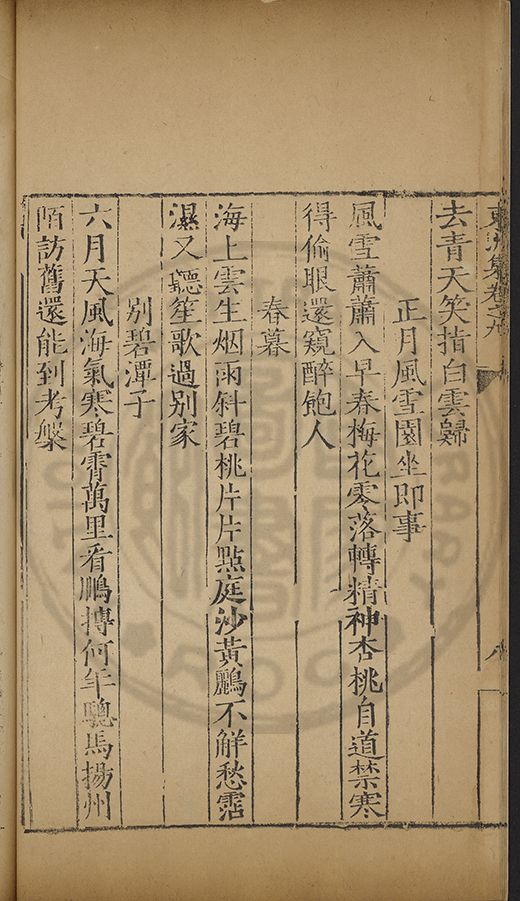 東洲集卷之九
八
去青天笑指白雲歸
正月風雪園坐即事
風雪蕭蕭入早春梅花零落轉精神杏桃自道禁寒
得偷眼還窺醉飽人
春暮
海上雲生烟雨斜碧桃片片點庭沙黃鸝不解愁霑
濕又聽笙歌過別家
別碧潭子
六月天風海氣寒碧霄萬里看鵬摶何年驄馬揚州
陌訪舊還能到考槃